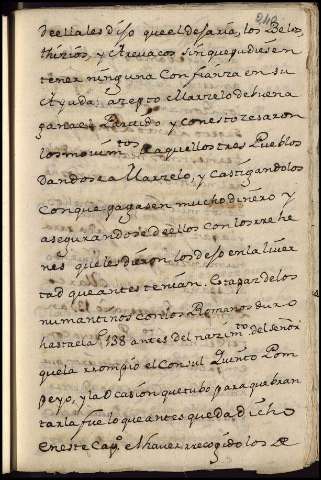 240
de ellales dijo que el desaria, los Belos,
thirios, y Arevacos sinque pudiesen
tener ninguna Confianza en su
Ayuda; azepto Marzelo de buena
gana el Partido y conesto zesaron
los movim.tos de aquellos tres Pueblos
dandose a Marzelo, y Castigandolos
Con que pagasen mucho dinero y
asegurandose de ellos con los rrehe
nes que le dieron los dejo en la liver
tad que antes tenian. Esta paz de los
numantinos con los Romanos duro
hasta el a.º 138 antes del nazim.to del señor
que la rrompio el Consul Quinto Pom
peyo, y la ocasion que tubo para quebran
tarla fue lo que antes queda dicho
en este Cap.º el haver rrecogido los de